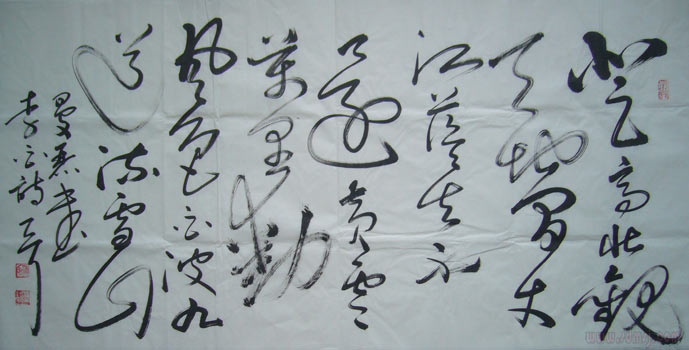 登高壯觀
天地間大
江茫茫去不
還黃雲
萬里動
風色白波九
道流雪山
書
李白詩